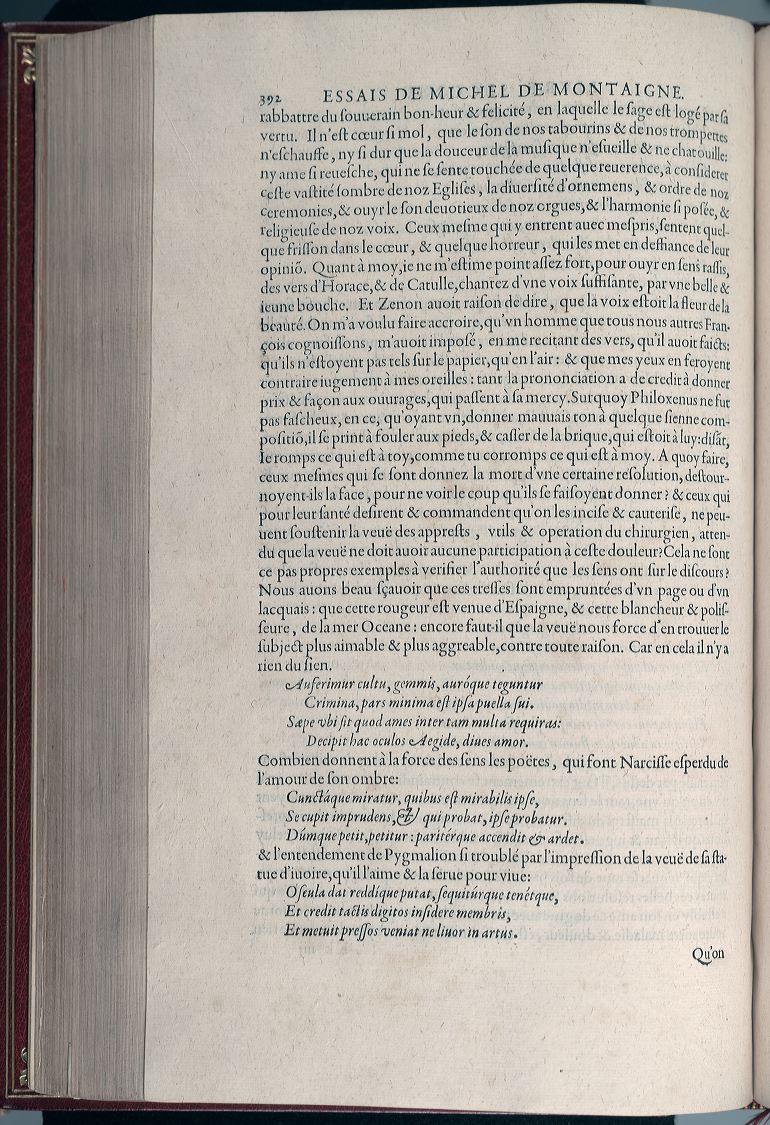 392 ESSAIS DE MICHEL DE MONTAIGNE.
rabbattre du ſouuerain bon-heur & felicité, en laquelle le ſage eſt logé par ſa
vertu. Il n'eſt cœur ſi mol, que le ſon de nos tabourins & de nos trompettes
n'eſchauffe, ny ſi dur que la douceur de la muſique n'eſueille & ne chatouille:
ny ame ſi reueſche, qui ne ſe ſente touchée de quelque reuerence, à conſiderer
ceſte vaſtité ſombre de noz Egliſes, la diuerſité d'ornemens, & ordre de noz
ceremonies, & ouyr le ſon deuotieux de noz orgues, & l'harmonie ſi poſée, &
religieuſe de noz voix. Ceux meſme qui y entrent auec meſpris, ſentent quel-
que friſſon dans le cœur, & quelque horreur, qui les met en deffiance de leur
opiniõ. Quant à moy, ie ne m'eſtime point aſſez fort, pour ouyr en ſens raſſis,
des vers d'Horace, & de Catulle, chantez d'vne voix ſuffiſante, par vne belle &
ieune bouche. Et Zenon auoit raiſon de dire, que la voix eſtoit la fleur de la
beauté. On m'a voulu faire accroire, qu'vn homme que tous nous autres Fran-
çois cognoiſſons, m'auoit impoſé, en me recitant des vers, qu'il auoit faicts:
qu'ils n'eſtoyent pas tels ſur le papier, qu'en l'air: & que mes yeux en feroyent
contraire iugement à mes oreilles: tant la prononciation a de credit à donner
prix & façon aux ouurages, qui paſſent à ſa mercy. Surquoy Philoxenus ne fut
pas faſcheux, en ce, qu'oyant vn, donner mauuais ton à quelque ſienne com-
poſitiõ, il ſe print à fouler aux pieds, & caſſer de la brique, qui eſtoit à luy: diſãt,
Ie romps ce qui eſt à toy, comme tu corromps ce qui eſt à moy. A quoy faire,
ceux meſmes qui ſe ſont donnez la mort d'vne certaine reſolution, deſtour-
noyent-ils la face, pour ne voir le coup qu'ils ſe faiſoyent donner? & ceux qui
pour leur ſanté deſirent & commandent qu'on les inciſe & cauteriſe, ne peu-
uent ſouſtenir la veuë des appreſts, vtils & operation du chirurgien, atten-
du que la veuë ne doit auoir aucune participation à ceſte douleur? Cela ne ſont
ce pas propres exemples à verifier l'authorité que les ſens ont ſur le diſcours?
Nous auons beau ſçauoir que ces treſſes ſont empruntées d'vn page ou d'vn
lacquais: que cette rougeur eſt venue d'Eſpaigne, & cette blancheur & poliſ-
ſeure, de la mer Oceane: encore faut-il que la veuë nous force d'en trouuer le
ſubject plus aimable & plus aggreable, contre toute raiſon. Car en cela il n'y a
rien du ſien.
Auferimur cultu, gemmis, auróque teguntur
Crimina, pars minima eſt ipſa puella ſui.
Sæpe vbi ſit quod ames inter tam multa requiras:
Decipit hac oculos Aegide, diues amor.
Combien donnent à la force des ſens les poëtes, qui font Narciſſe eſperdu de
l'amour de ſon ombre:
Cunctáque miratur, quibus eſt mirabilis ipſe,
Se cupit imprudens, & qui probat, ipſe probatur.
Dúmque petit, petitur: paritérque accendit & ardet.
& l'entendement de Pygmalion ſi troublé par l'impreſſion de la veuë de ſa ſta-
tue d'iuoire, qu'il l'aime & la ſerue pour viue:
Oſcula dat reddique putat, ſequitúrque tenétque,
Et credit tactis digitos inſidere membris,
Et metuit preſſos veniat ne liuor in artus.
Qu'on